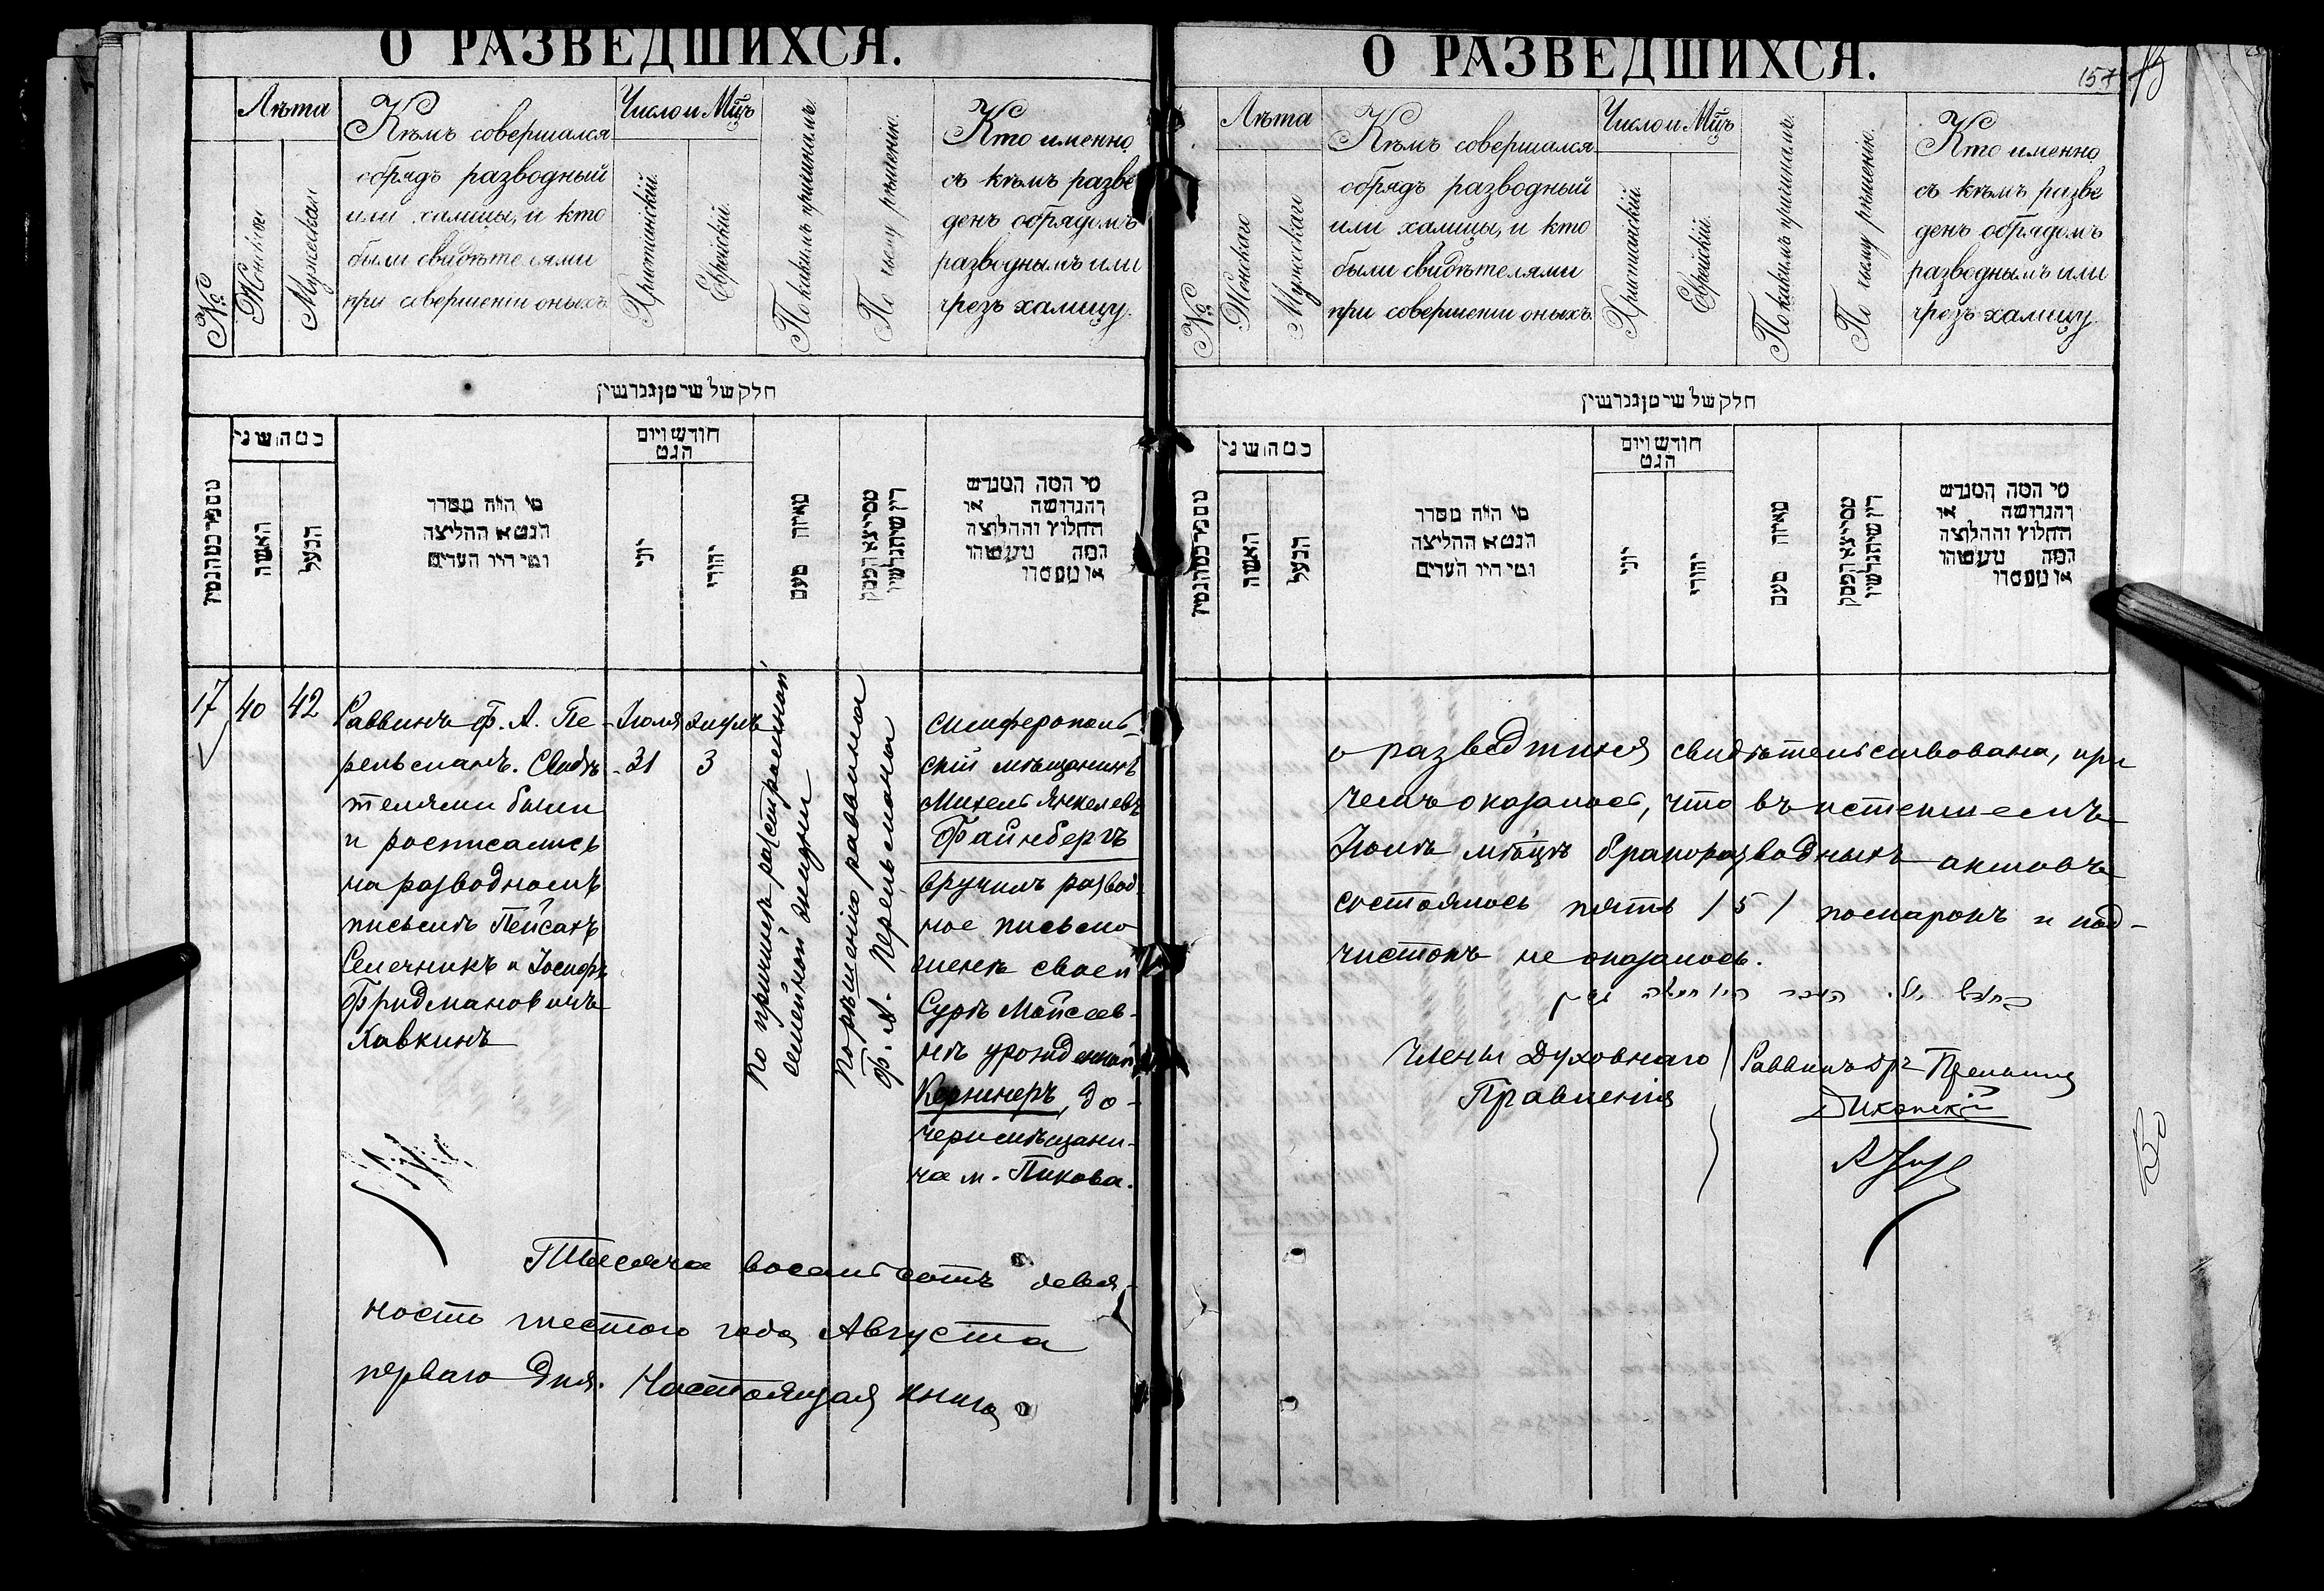 О РАЗВЕДШИХСЯ.
№
Лѣта
Женскаго
Мужескаго
Кѣмъ совершался
обрядъ разводный
или халицы, и кто
были свидѣтелями
при совершеніи оныхъ.
Число и Мцъ
Христіанскій.
Еврейскій.
По какимъ причинамъ.
По чьему рѣшенію.
Кто именно
съ кѣмъ разве
денъ обрядомъ
разводнымъ или
чрезъ халицу.
חלק של שיטן גרושין
חודש ויום
הגט
האשה
הבעל
מי היה מסדר
הגט או החליצה
ומי היו העדים
יוני
יהודי
מאיזה טעם
מי המה המגרש
והגרושה או
החלוץ והחלוצה
17
40
42
Раввинъ Ф. А. Пе-
рельманъ. Свидѣ-
телями были
и росписались
на разводномъ
письмѣ Пейсахъ
Семечникъ и Іосифъ
Фридмановичъ
Хавкинъ
Іюля
31
Элулъ
3
По причинѣ разстроенной
семейной жизни
По рѣшенію раввина
Ф. А. Перельмана
Симферополь-
скій мѣщанинъ
Михель Янкелевъ
Файнбергъ
вручилъ развод-
ное письмо
женѣ своей
Сурѣ Мойсеев-
нѣ урожденной
Кернеръ, до-
чери мѣщани-
на м. Пикова.
Тысяча восемьсотъ девя-
носто шестого года Августа
перваго дня. Настоящая книга
О РАЗВЕДШИХСЯ.
157
№
Лѣта
Женскаго
Мужескаго
Кѣмъ совершался
обрядъ разводный
или халицы, и кто
были свидѣтелями
при совершеніи оныхъ.
Число и Мцъ
Христіанскій.
Еврейскій.
По какимъ причинамъ.
По чьему рѣшенію.
Кто именно
съ кѣмъ разве
денъ обрядомъ
разводнымъ или
чрезъ халицу.
חלק של שיטן גרושין
חודש ויום
הגט
האשה
הבעל
מי היה מסדר
הגט או החליצה
ומי היו העדים
יוני
יהודי
מאיזה טעם
מי המה המגרש
והגרושה או
החלוץ והחלוצה
о разведшихся свидѣтельствована, при
чемъ оказалось, что въ истекшемъ
Іюлѣ мѣсяцѣ бракоразводныхъ актовъ
состоялось пять /5/ помарокъ и под-
чистокъ не оказалось.
Члены Духовнаго
Правленія
Раввинъ Ф. Перельманъ